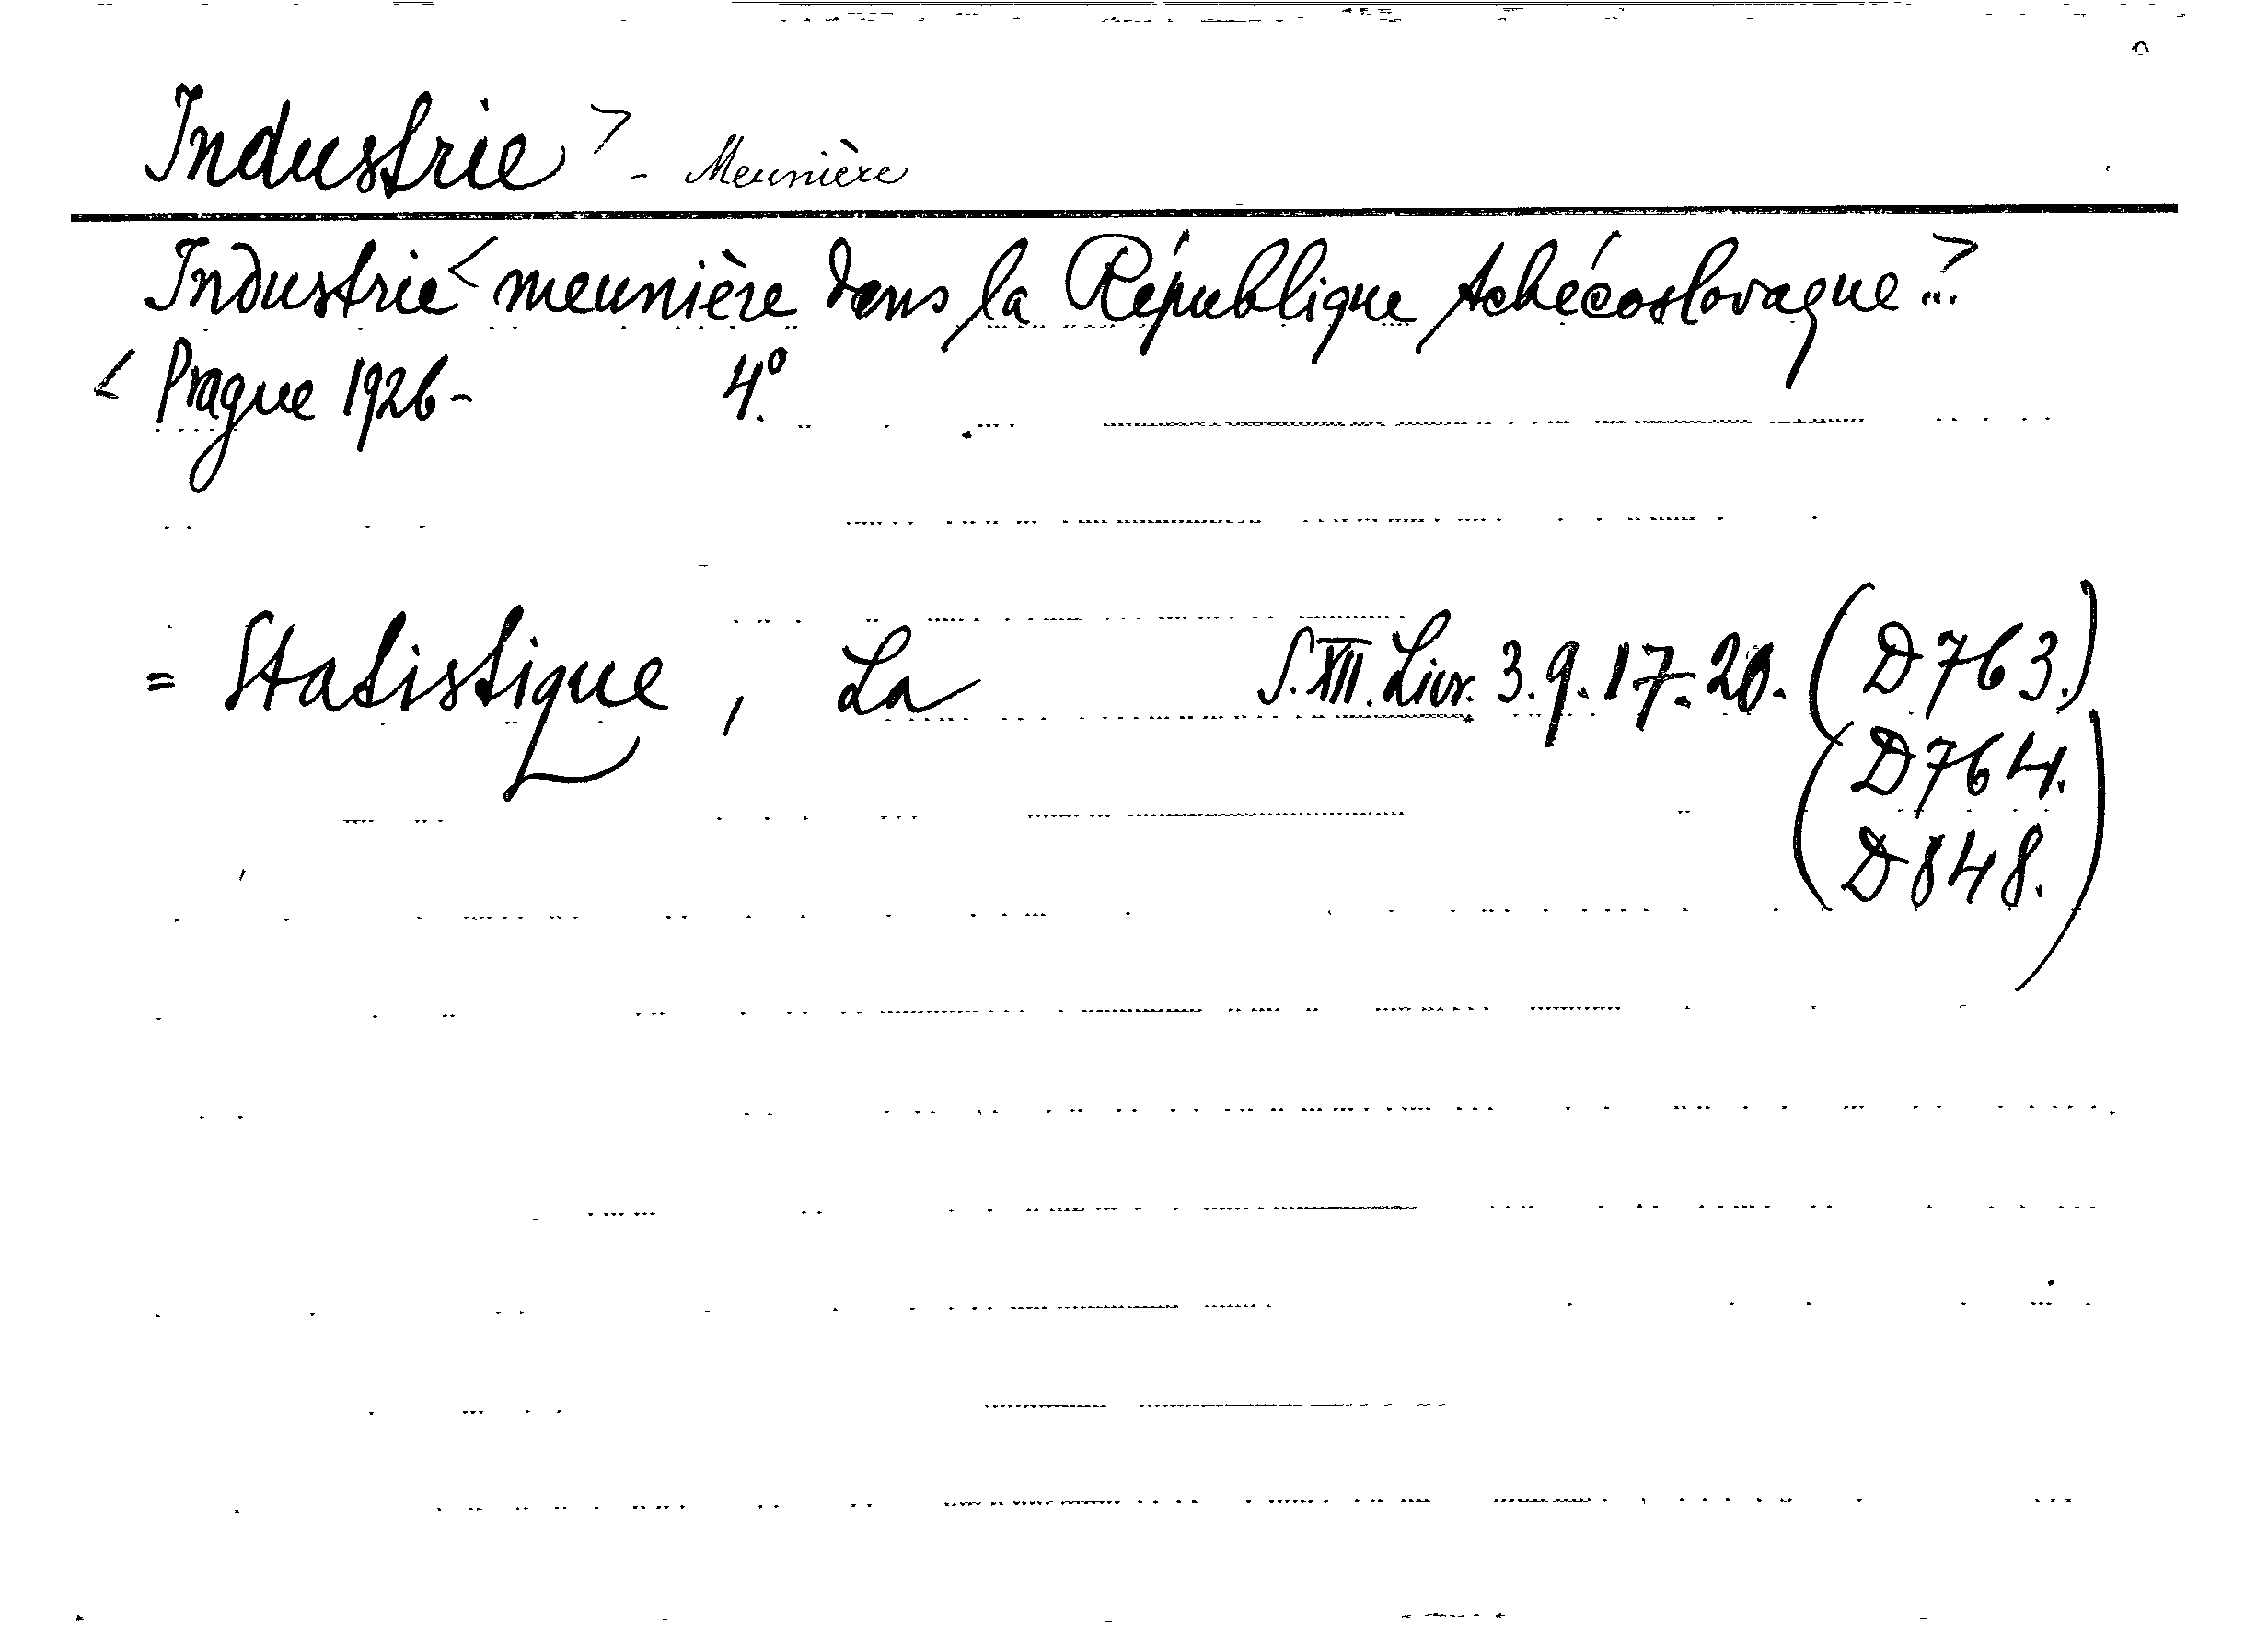 Industrie> - Meunière
Industrie< meunière dans la République tchécoslovaque...>
< Prague 1926- 4º.
= Statistique, La S. XII. Livr. 3. 9. 17.- 20. (D763.)
(D764.
D848.)